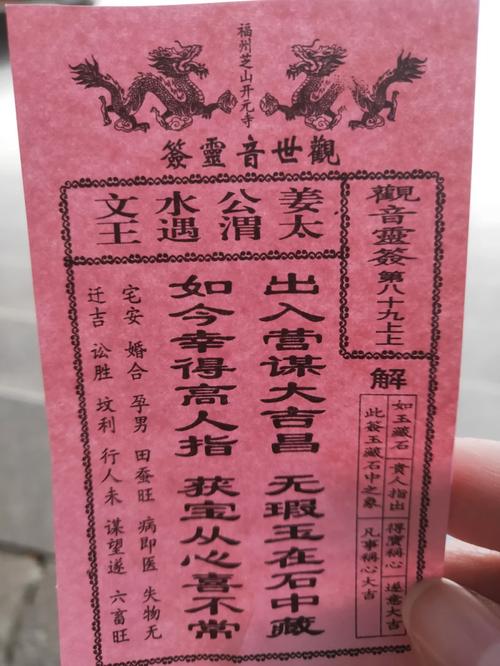 福州芝山开元寺
觀世音靈簽
觀音靈簽第八十九上上
姜太
公渭
水遇
文王
解
如玉藏石 貴人指出 得寶稱心 遂意大吉
此簽玉藏石中之象 凡事稱心大吉
出入营谋大吉昌 无瑕玉在石中藏
如今幸得高人指 获宝从心喜不常
宅安 婚合 孕男 田蚕旺 病即医 失物无
迁吉 讼胜 坟利 行人未 谋望遂 六畜旺